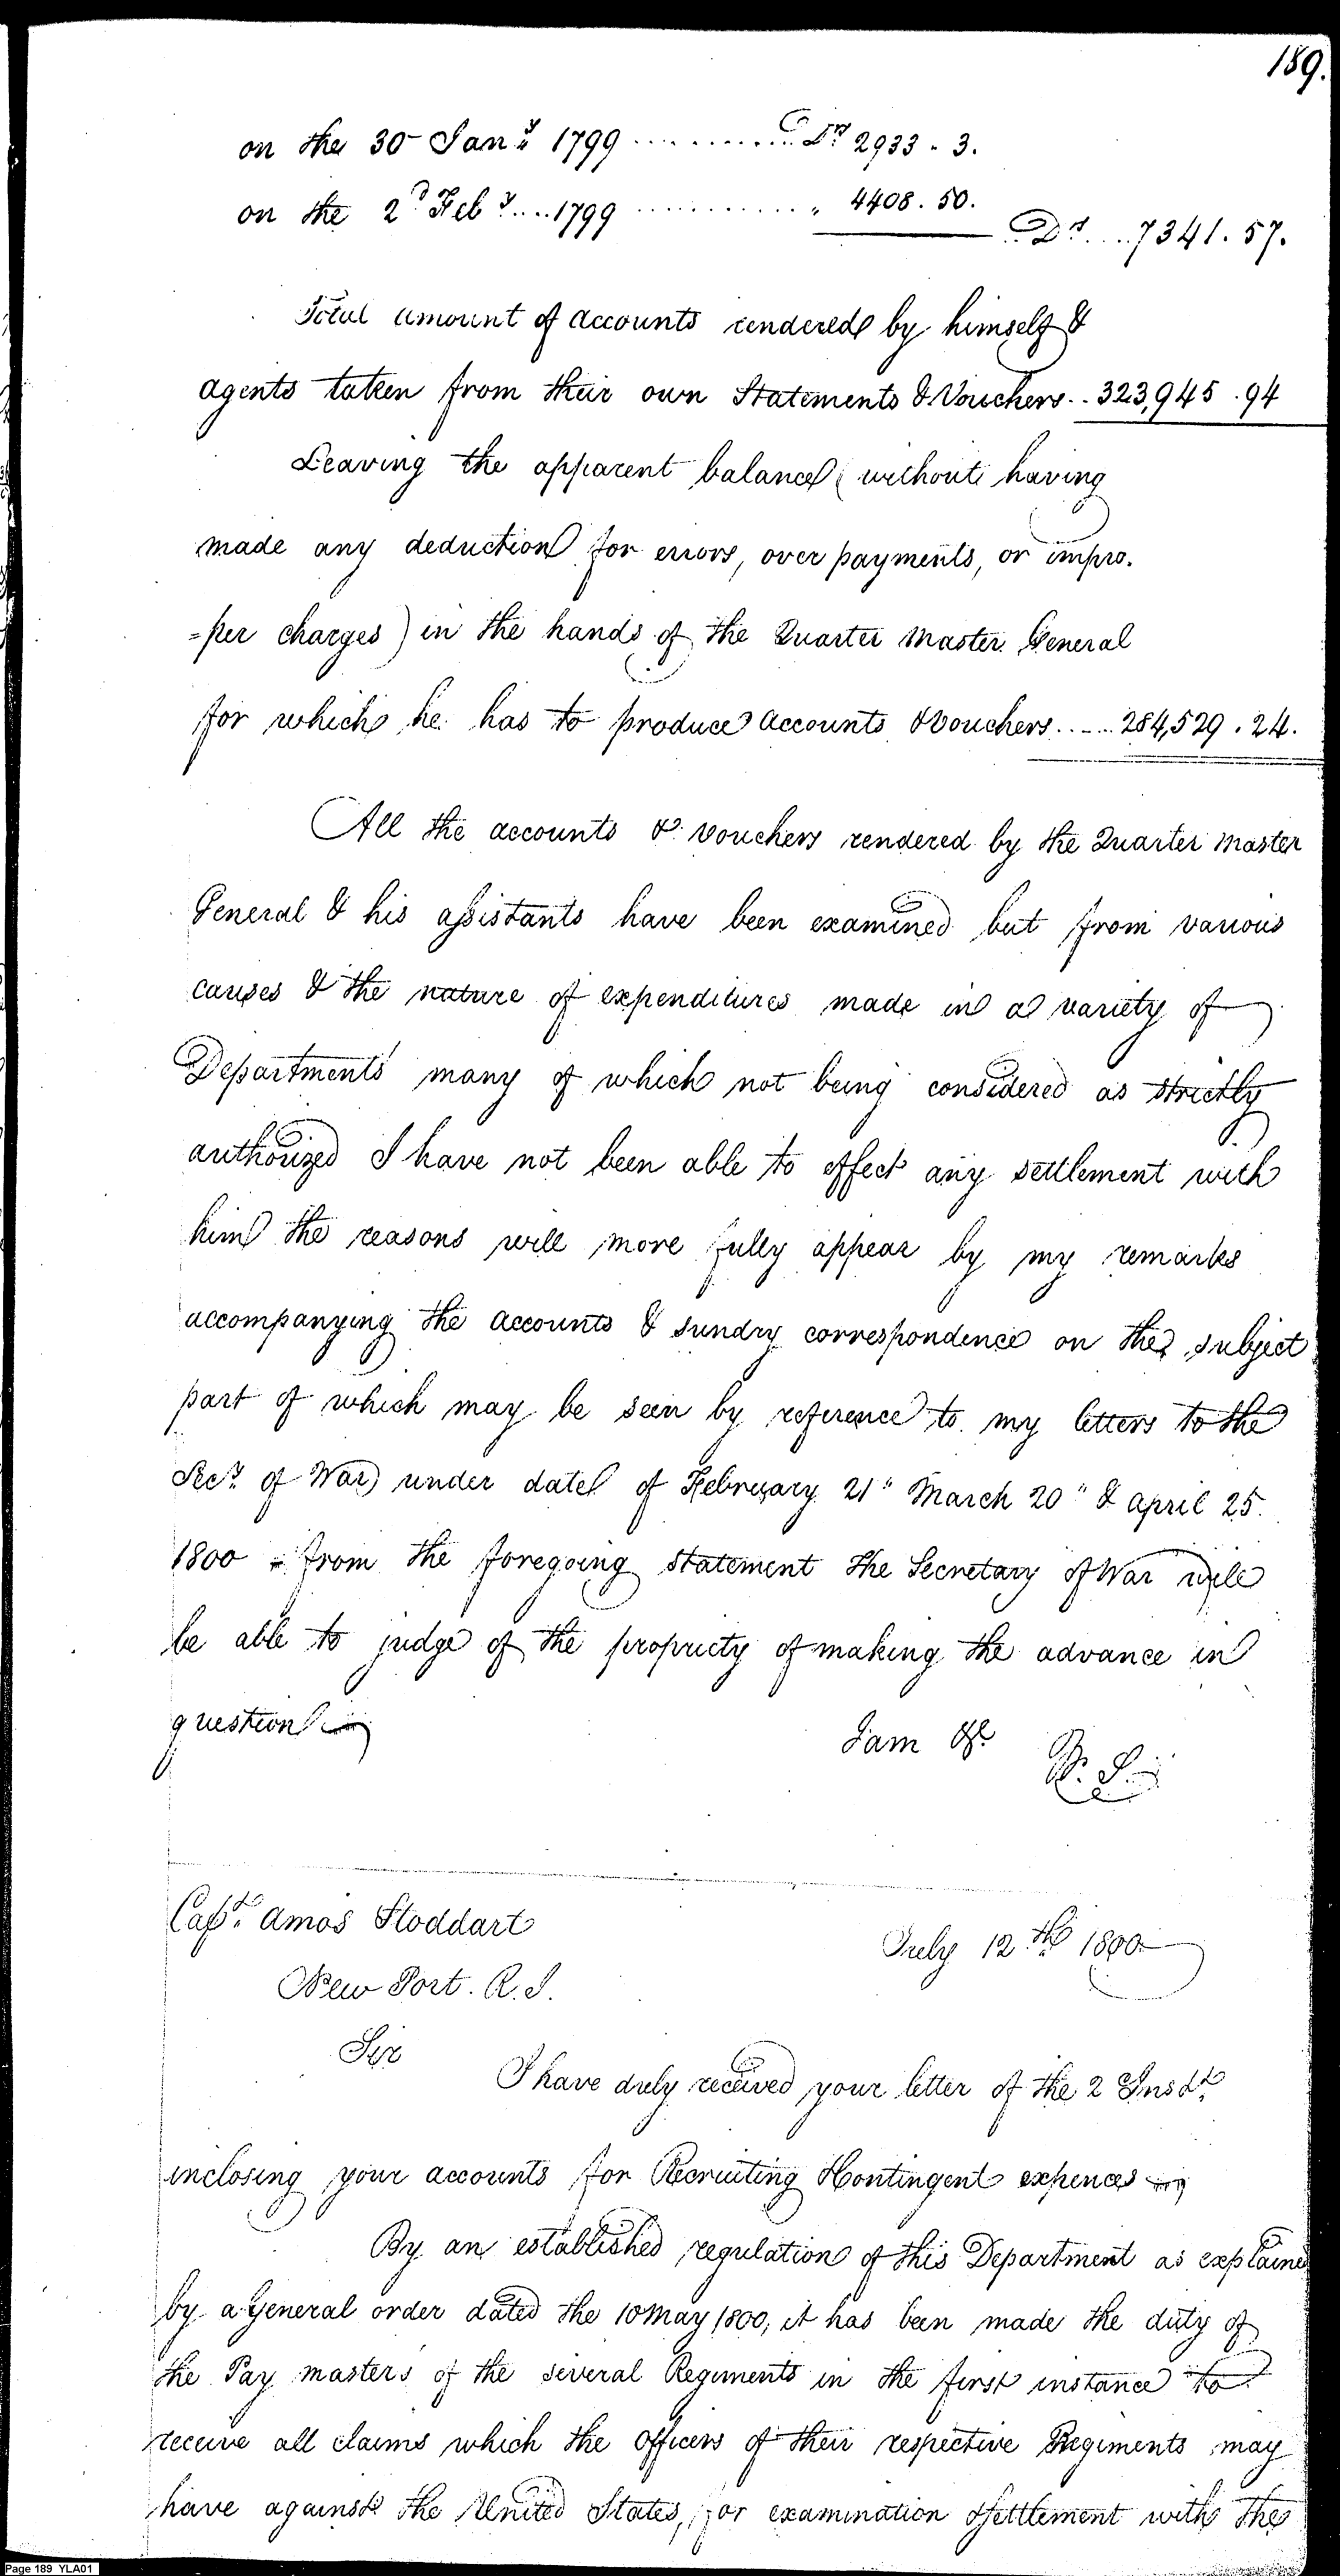 189.
on the 30 Jany 1799 ............ Drs 2933 . 3.
on the 2d Feby .... 1799 ............ " 4408 . 50.
Drs .... 7341 . 57.
Total amount of accounts rendered by himself &
agents taken from their own Statements & Vouchers .. 323,945 . 94
Leaving the apparent balance (without having
made any deduction for errors, over payments, or impro.
=per charges) in the hands of the Quarter Master General
for which he has to produce accounts & Vouchers ..... 284,529 . 24.
All the accounts & vouchers rendered by the Quarter Master
General & his assistants have been examined but from various
causes & the nature of expenditures made in a variety of
Departments many of which not being considered as strictly
authorized I have not been able to effect any settlement with
him the reasons will more fully appear by my remarks
accompanying the accounts & sundry correspondence on the subject
part of which may be seen by reference to my letters to the
Secy. of War under date of February 21" March 20" & april 25.
1800 - from the foregoing statement the Secretary of War will
be able to judge of the propriety of making the advance in
question
I am &c
W. S.
Capt. Amos Stoddart
July 12th 1800
New Port. R.I.
Sir
I have duly received your letter of the 2 Inst.
inclosing your accounts for Recruiting & Contingent expences
By an established regulation of this Department as explained
by a General order dated the 10 May 1800, it has been made the duty of
the Pay masters of the several Regiments in the first instance to
receive all claims which the officers of their respective Regiments may
have against the United States, for examination & settlement with the
Page 189 YLA01